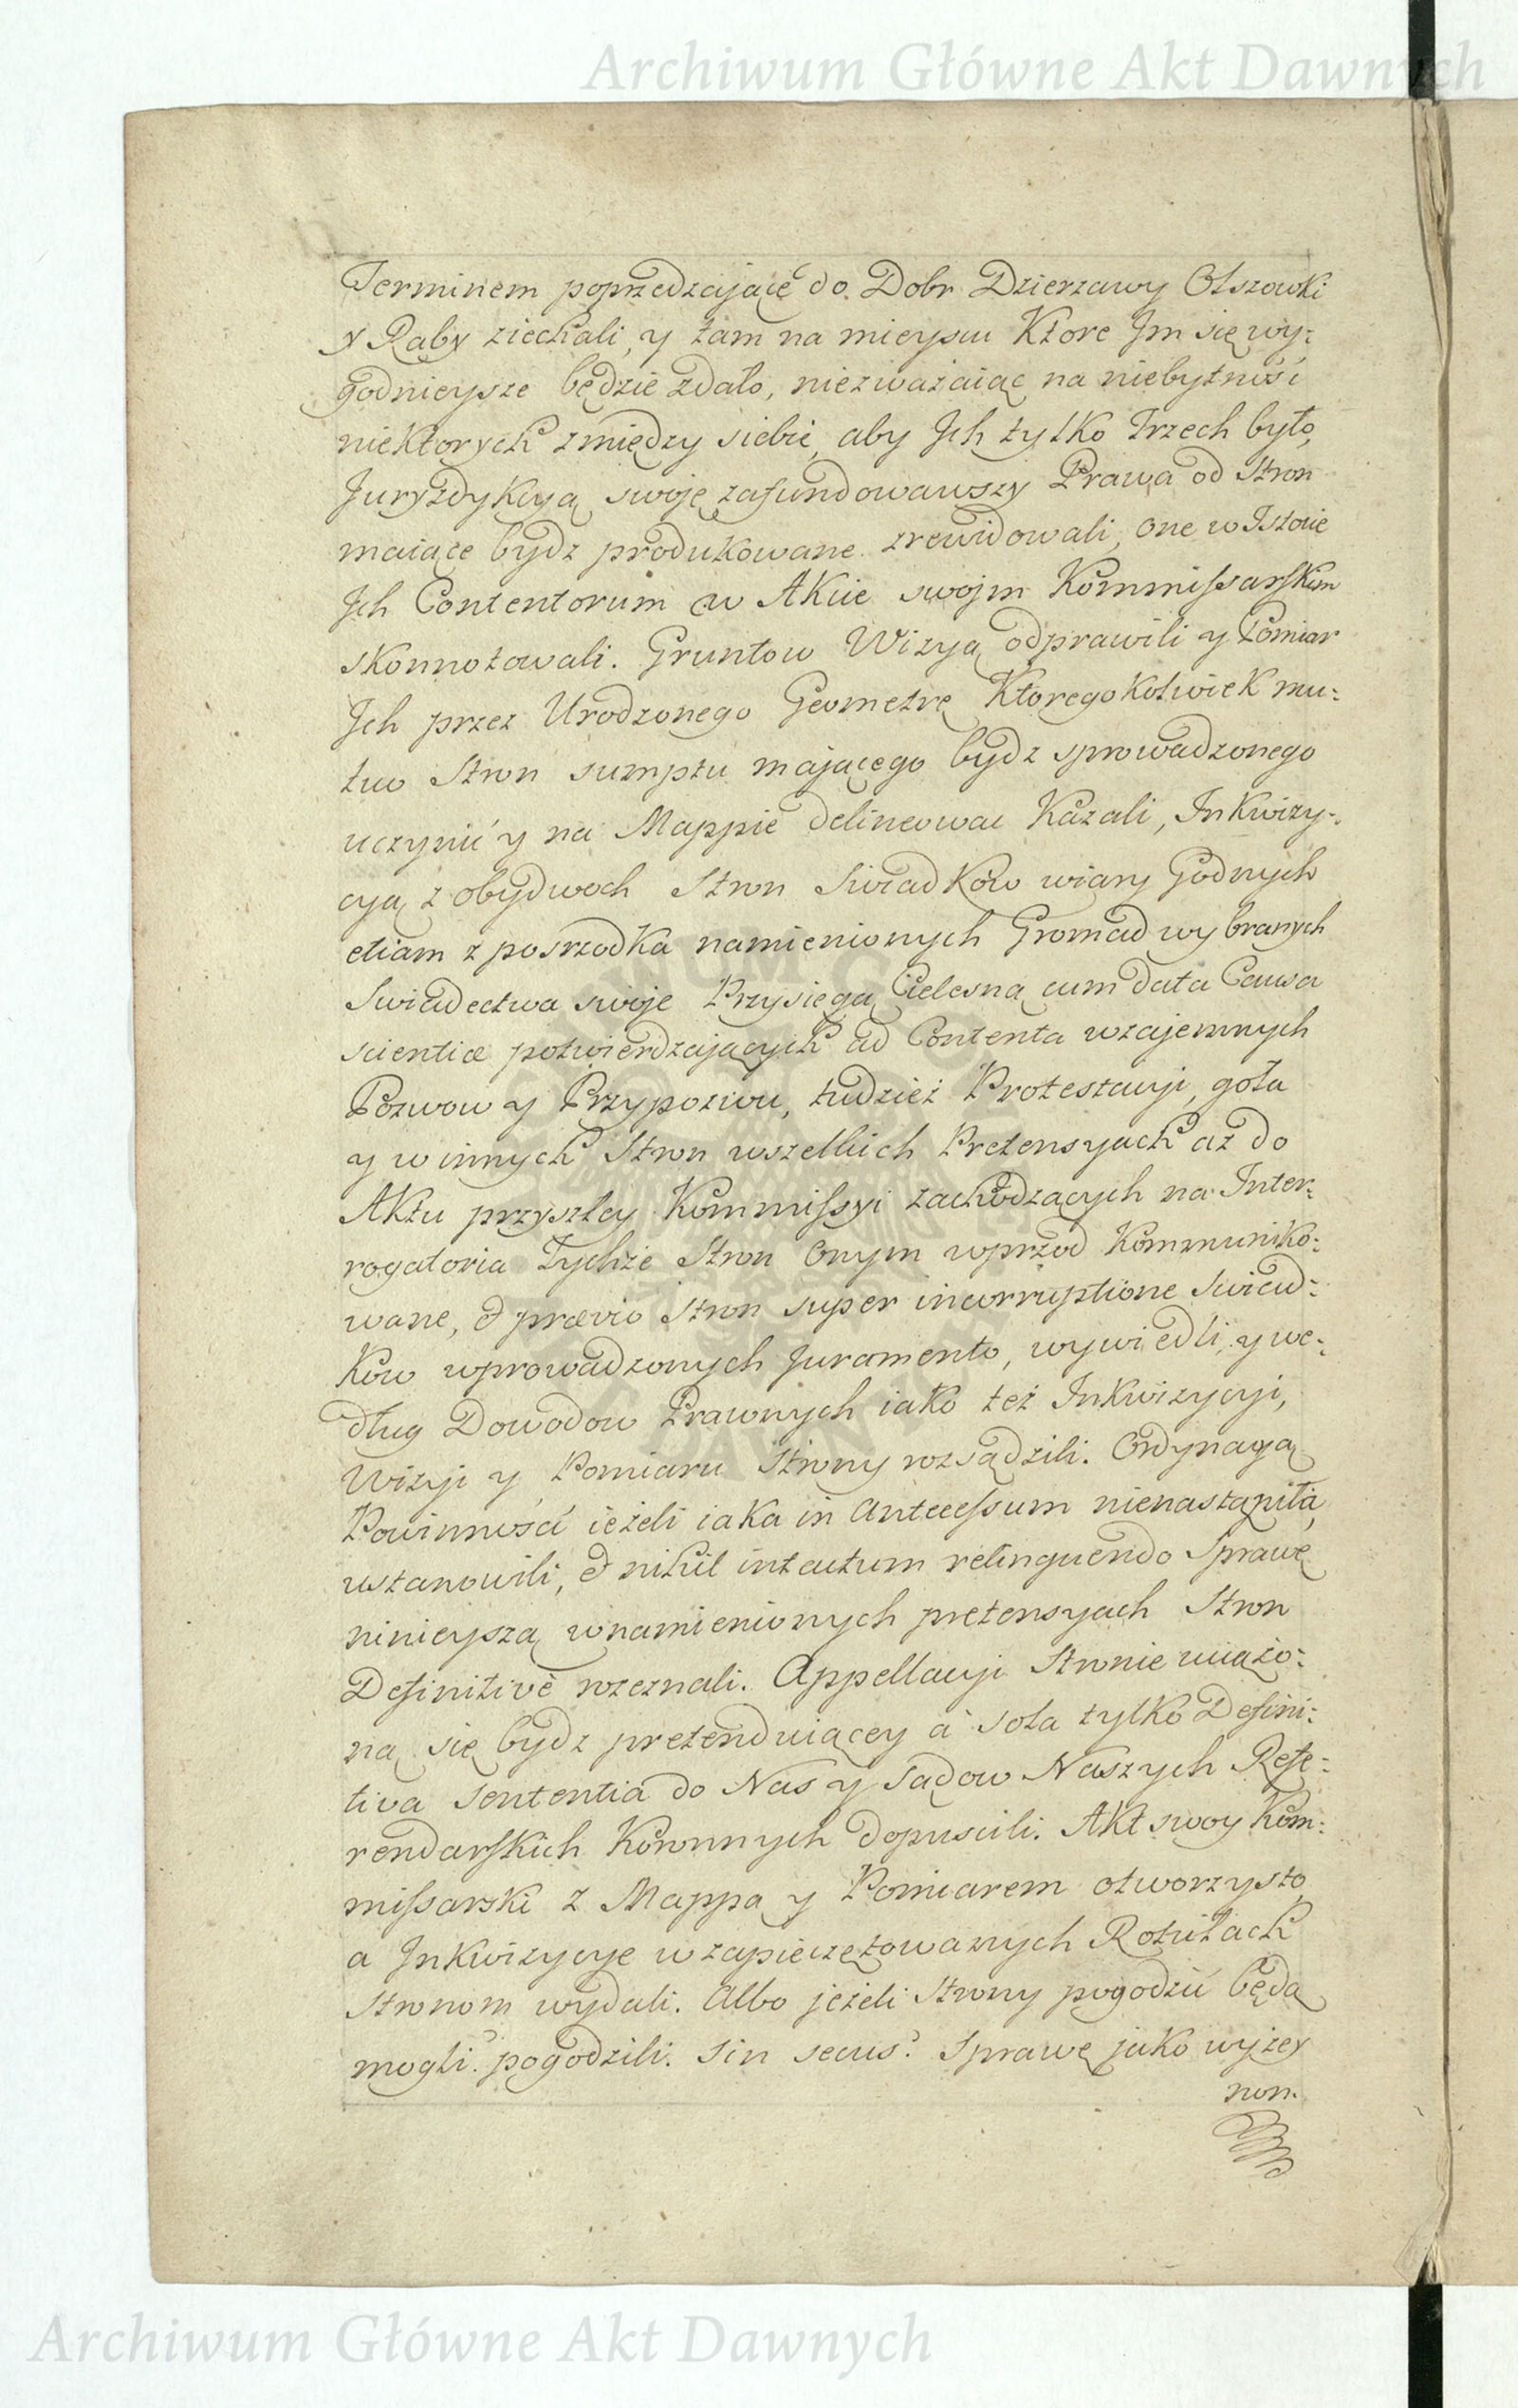 Archiwum Główne Akt Dawnych
Terminem poprzedzającę do Dobr Dzierzawy Olszowki
y Raby ziechali, y tam na mieyscu Ktore Jm się wy:
godnieysze będzie zdało, niezważaiąc na niebytność
niektorych zmiędzy siebie, aby Jch tylko Trzech było,
Juryzdykcyą swoję zafundowawszy Prawa od Stron
maiące bydz produkowane zrewidowali, one w Jstocie
Jch Contentorum w Akcie swojm Kommissarskim
skonnotowali. Gruntow Wizyą odprawili y Pomiar
Jch przez Urodzonego Geometrę Ktoregokolwiek mu:
tuo Stron sumptu mającego bydz sprowadzonego
uczynić y na Mappie delineować Kazali, Inkwizy:
cyą z obydwoch Stron Swiadkow wiary Godnych
etiam z posrzodka namienionych Gromad wybranych
Swiadectwa swoje Przysięgą Cielesną cum data Causa
scientiæ potwierdzających ad Contenta wzajemnych
Pozwow y Przypozwu, tudzież Protestacyi, gola
y w innych Stron wszelkich Pretensyach aż do
Aktu przyszłey Kommissyi zachodzących na Inter:
rogatoria Tychże Stron Onym wprzod Kommuniko:
wane, & prævio Stron super incorruptione Swiad:
kow wprowadzonych Juramento, wywiedli, y we:
dług Dowodow Prawnych iako też Inkwizycyi,
Wizyi y Pomiaru Strony rozsądzili. Ordynaryą
Powinność ieżeli iaka in antecessum nienastąpiła,
ustanowili, & nihil intactum relinquendo Sprawę
ninieyszą w namienionych pretensyach Stron
Definitivè rozeznali. Appellacyi Stronie uciążo:
ną się bydz pretenduiącey à sola tylko Defini:
tiva Sententia do Nas y Sądow Naszych Refe:
rendarskich Koronnych dopuscili. Akt swoy Kom:
missarski z Mappą y Pomiarem otworzysto,
a Inkwizycye w zapieczętowanych Rotułach
Stronom wydali. Albo jeżeli Strony pogodzić będą
mogli? pogodzili. Sin secus? Sprawę jako wyżey
non.
Archiwum Główne Akt Dawnych